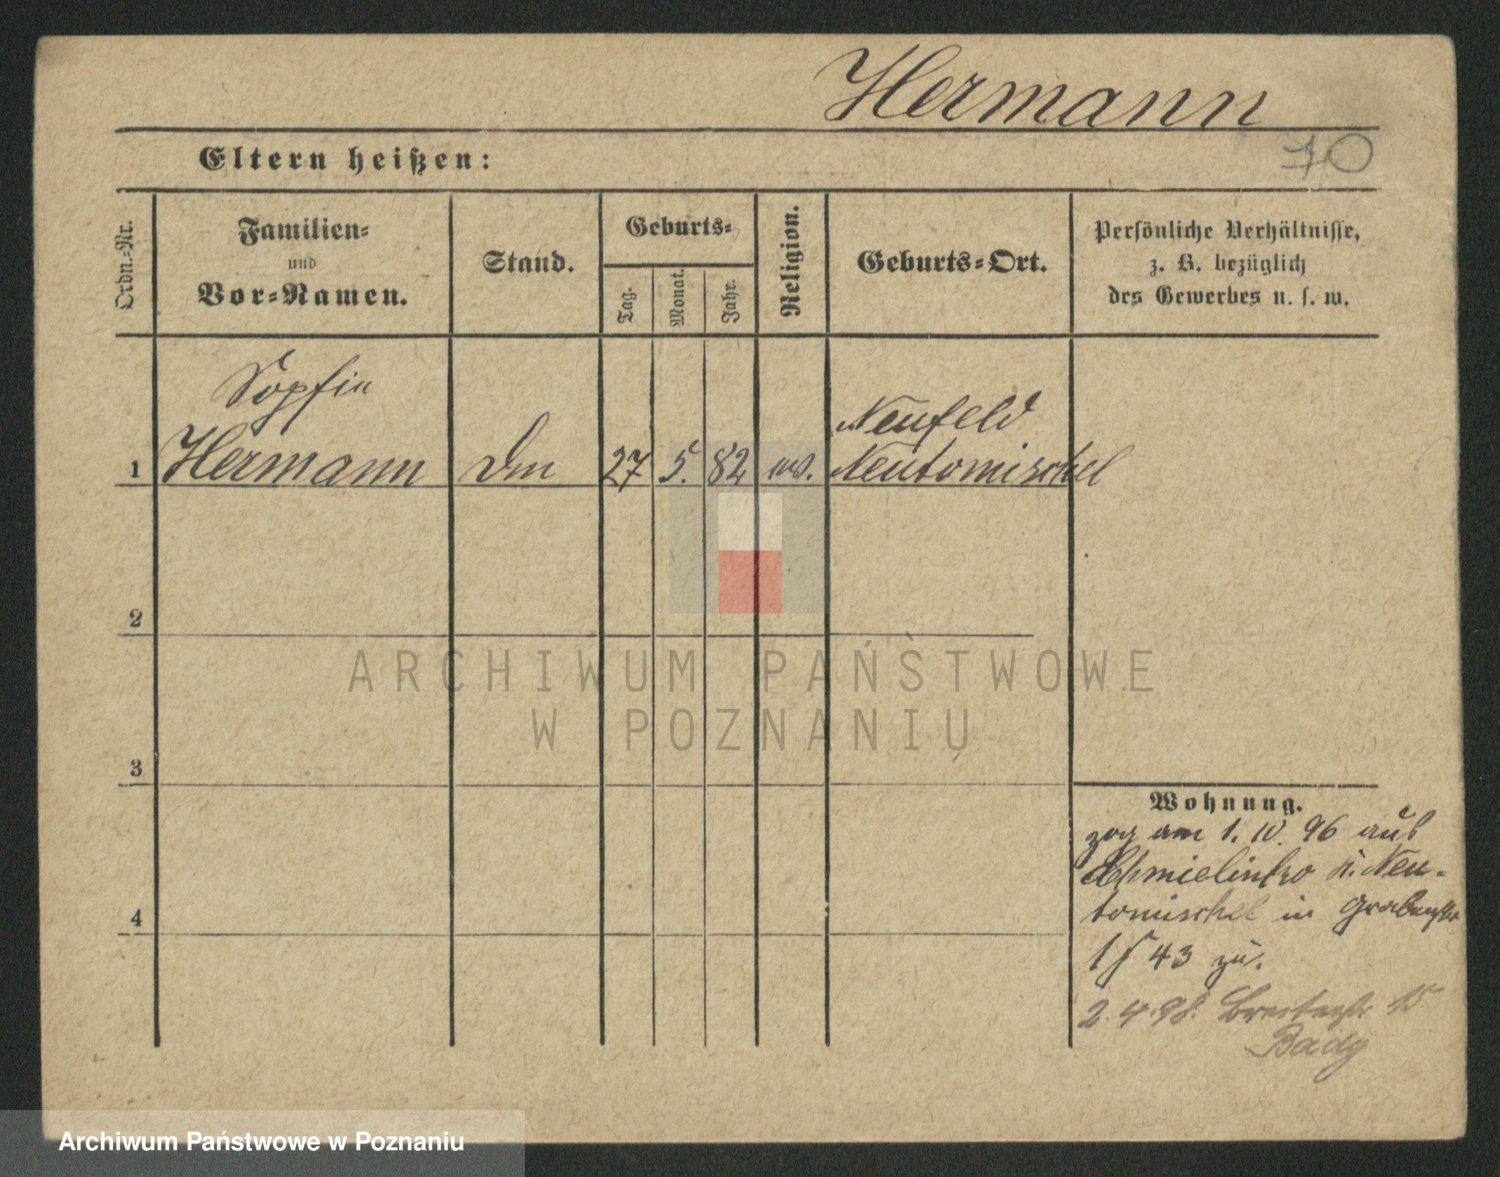 Hermann
10
Eltern heißen:
Ordn.-Nr.
Familien-
und
Vor-Namen.
Stand.
Geburts-
Tag.
Monat.
Jahr.
Religion.
Geburts-Ort.
Persönliche Verhältnisse,
z. B. bezüglich
des Gewerbes u. s. w.
Sophie
Hermann
1
27
5.
82
ev.
Neufeld
Neutomischel
2
3
4
Wohnung.
zog am 1. IV. 96 aus
Chmielinko b. Neu-
tomischel in Grabenstr
43 zu.
2.4.98. Breitestr 15
ARCHIWUM PAŃSTWOWE
W POZNANIU
Archiwum Państwowe w Poznaniu